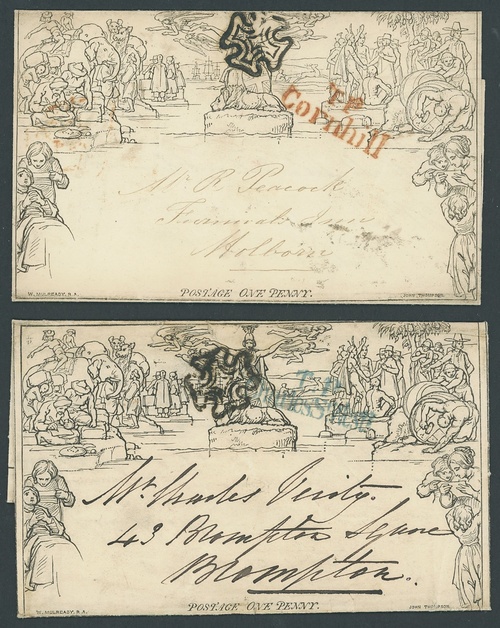 T.P
Cornhill
Mr. R Peacock
Furnivals Inn
Holborn
W. MULREADY. R.A.
POSTAGE ONE PENNY.
JOHN THOMPSON
T.P
Mr. Charles Verity.
43 Brompton Square
Brompton.
W. MULREADY. R.A.
POSTAGE ONE PENNY.
JOHN THOMPSON